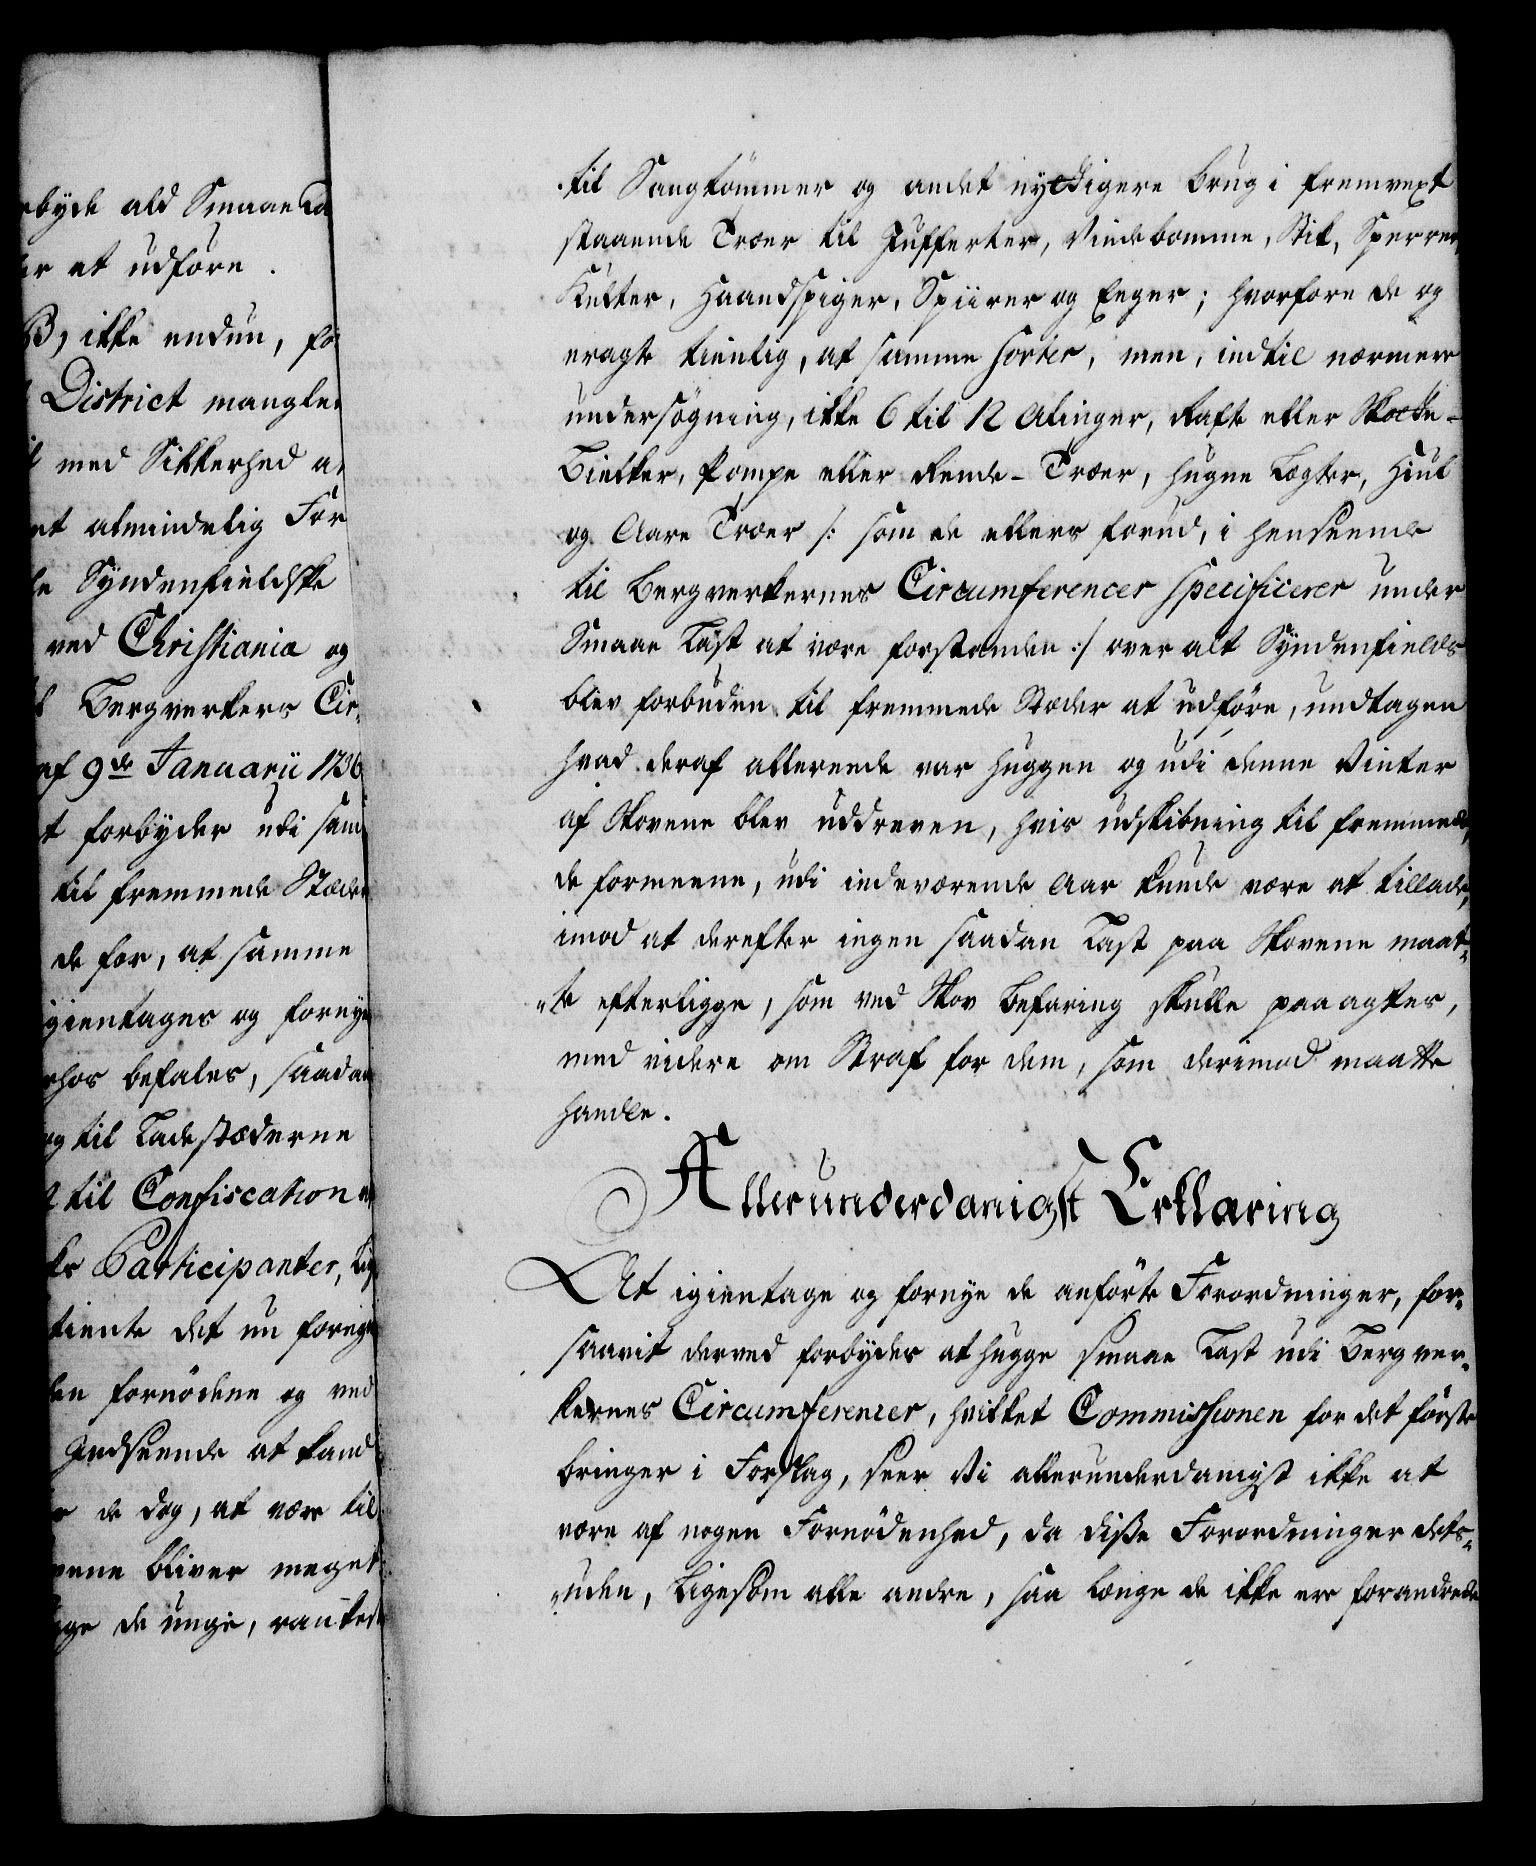 byde ald Smaae La
er at udføre.
B, ikke endnu, fo
District mangle
med Sikkerhed a
et almindelig For
Syndenfieldske
ved Christiania og
Bergverkers Cir-
af 9de Januarii 1736
forbyder udi sam
til fremmede Stæde
de for, at samme
igientages og fornye
hos befales, saadan
og til Ladestæderne
til Confiscation
Participanter, Lig
tiente det nu foreg
en fornødene og ved
Indseende at kand
de dog, at være til
vene bliver meget
de unge, rankest
til Saugtømmer og andet nyttigere brug i fremvext
staaende Træer til Jufferter, Vindebomme, Stik, Sperrer,
Kubter, Haandspiger, Spiirer og Eeger; hvorfore de og
eragte tienlig, at samme Sorter, men, indtil nærmere
undersøgning, ikke 6 til 12 Alinger, Raft eller Skotte-
Bielker, Pompe eller Rende-Træer, hugne Lægter, Hiul
og Aare Træer /: som de ellers forud, i henseende
til Bergverkernes Circumferencer specificerer under
Smaae Last at være forstanden :/ over alt Syndenfields
blev forbuden til fremmede Stæder at udføre, undtagen
hvad deraf allereede var huggen og udi denne Vinter
af Skovene blev uddreven, hvis udskibning til fremmede,
de formeene, udi indeværende Aar kunde være at tillade,
imod at derefter ingen saadan Last paa Skovene maat-
te efterligge, som ved Skov Befaring skulle paaagtes,
med videre om Straf for dem, som derimod maatte
handle.
Allerunderdanigst Erklæring
At igientage og fornye de anførte Forordninger, for-
saavit derved forbydes at hugge smaae Last udi Bergver-
kernes Circumferencer, hvilket Commissionen for det første
bringer i Forslag, seer Vi allerunderdanigst ikke at
være af nogen Fornødenhed, da disse Forordninger dets-
uden, ligesom alle andre, saa længe de ikke ere forandrede